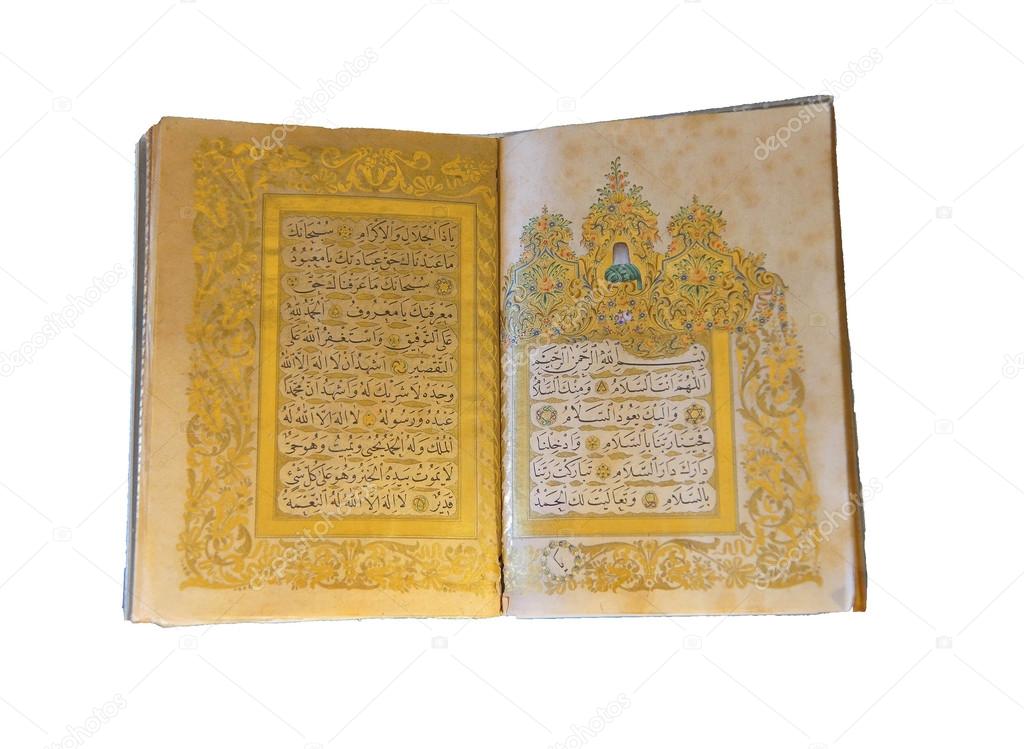 بسم الله الرحمن الرحيم
اللهم انت السلام ومنك السلا
واليك يعود السلام
فحينا ربنا بالسلام وادخلنا
دارك دار السلام تباركت ربنا
بالسلام وتعاليت لك الحمد
ياذا الجلال والاكرام سبحانك
ما عبدناك حق عبادتك يا معبود
سبحانك ما عرفناك حق
معرفتك يا معروف الحمد لله
على التوفيق واستغفر الله على
التقصير اشهد ان لا اله الا الله
وحده لا شريك له واشهد ان محمدا
عبده ورسوله لا اله الا الله له
الملك وله الحمد يحيى ويميت وهو حى
لا يموت بيده الخير وهو على كل شئ
قدير لا اله الا الله له النعمة
depositphotos